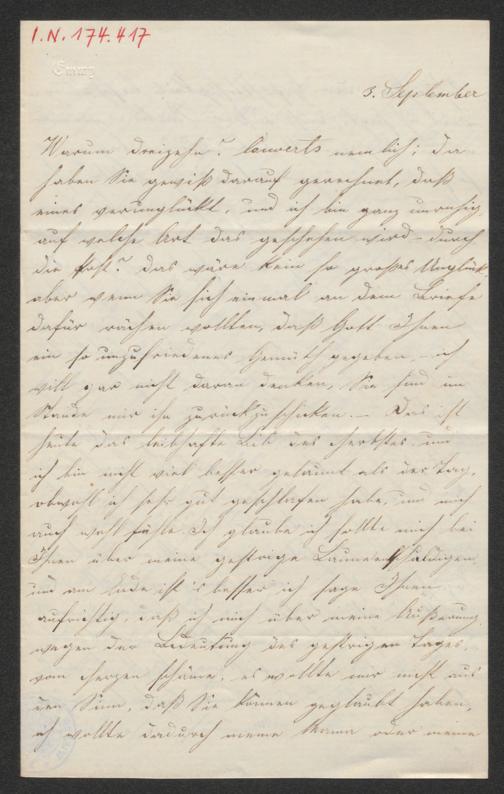 I.N. 174.417
Emmy
3. September
Warum dreizehn? Couverts nemlich; da
haben Sie gewiß darauf gerechnet, daß
eines verunglückt, und ich bin ganz unruhig,
auf welche Art das geschehen wird – durch
die Post? das wäre kein so großes Unglück
aber wenn Sie sich einmal an dem Briefe
dafür rächen wollten, daß Gott Ihnen
ein so unzufriedenes Gemüth gegeben, – ich
will gar nicht daran denken, Sie sind im
Stande mir ihn zurückzuschicken. – Das ist
heute das leibhafte Bild des Herbstes und
ich bin nicht viel besser gelaunt als der Tag,
obwohl ich sehr gut geschlafen habe, und mich
auch wohl fühle. Ich glaube ich sollte mich bei
Ihnen über meine gestrige Laune entschuldigen,
und am Ende ist's besser ich sage Ihnen
aufrichtig, daß ich mich über meine Äußerung
wegen der Bedeutung des gestrigen Tages
vom Herzen schäme, es wollte mir nicht aus
dem Sinn, daß Sie können geglaubt haben,
ich wollte dadurch meine Mama oder meine